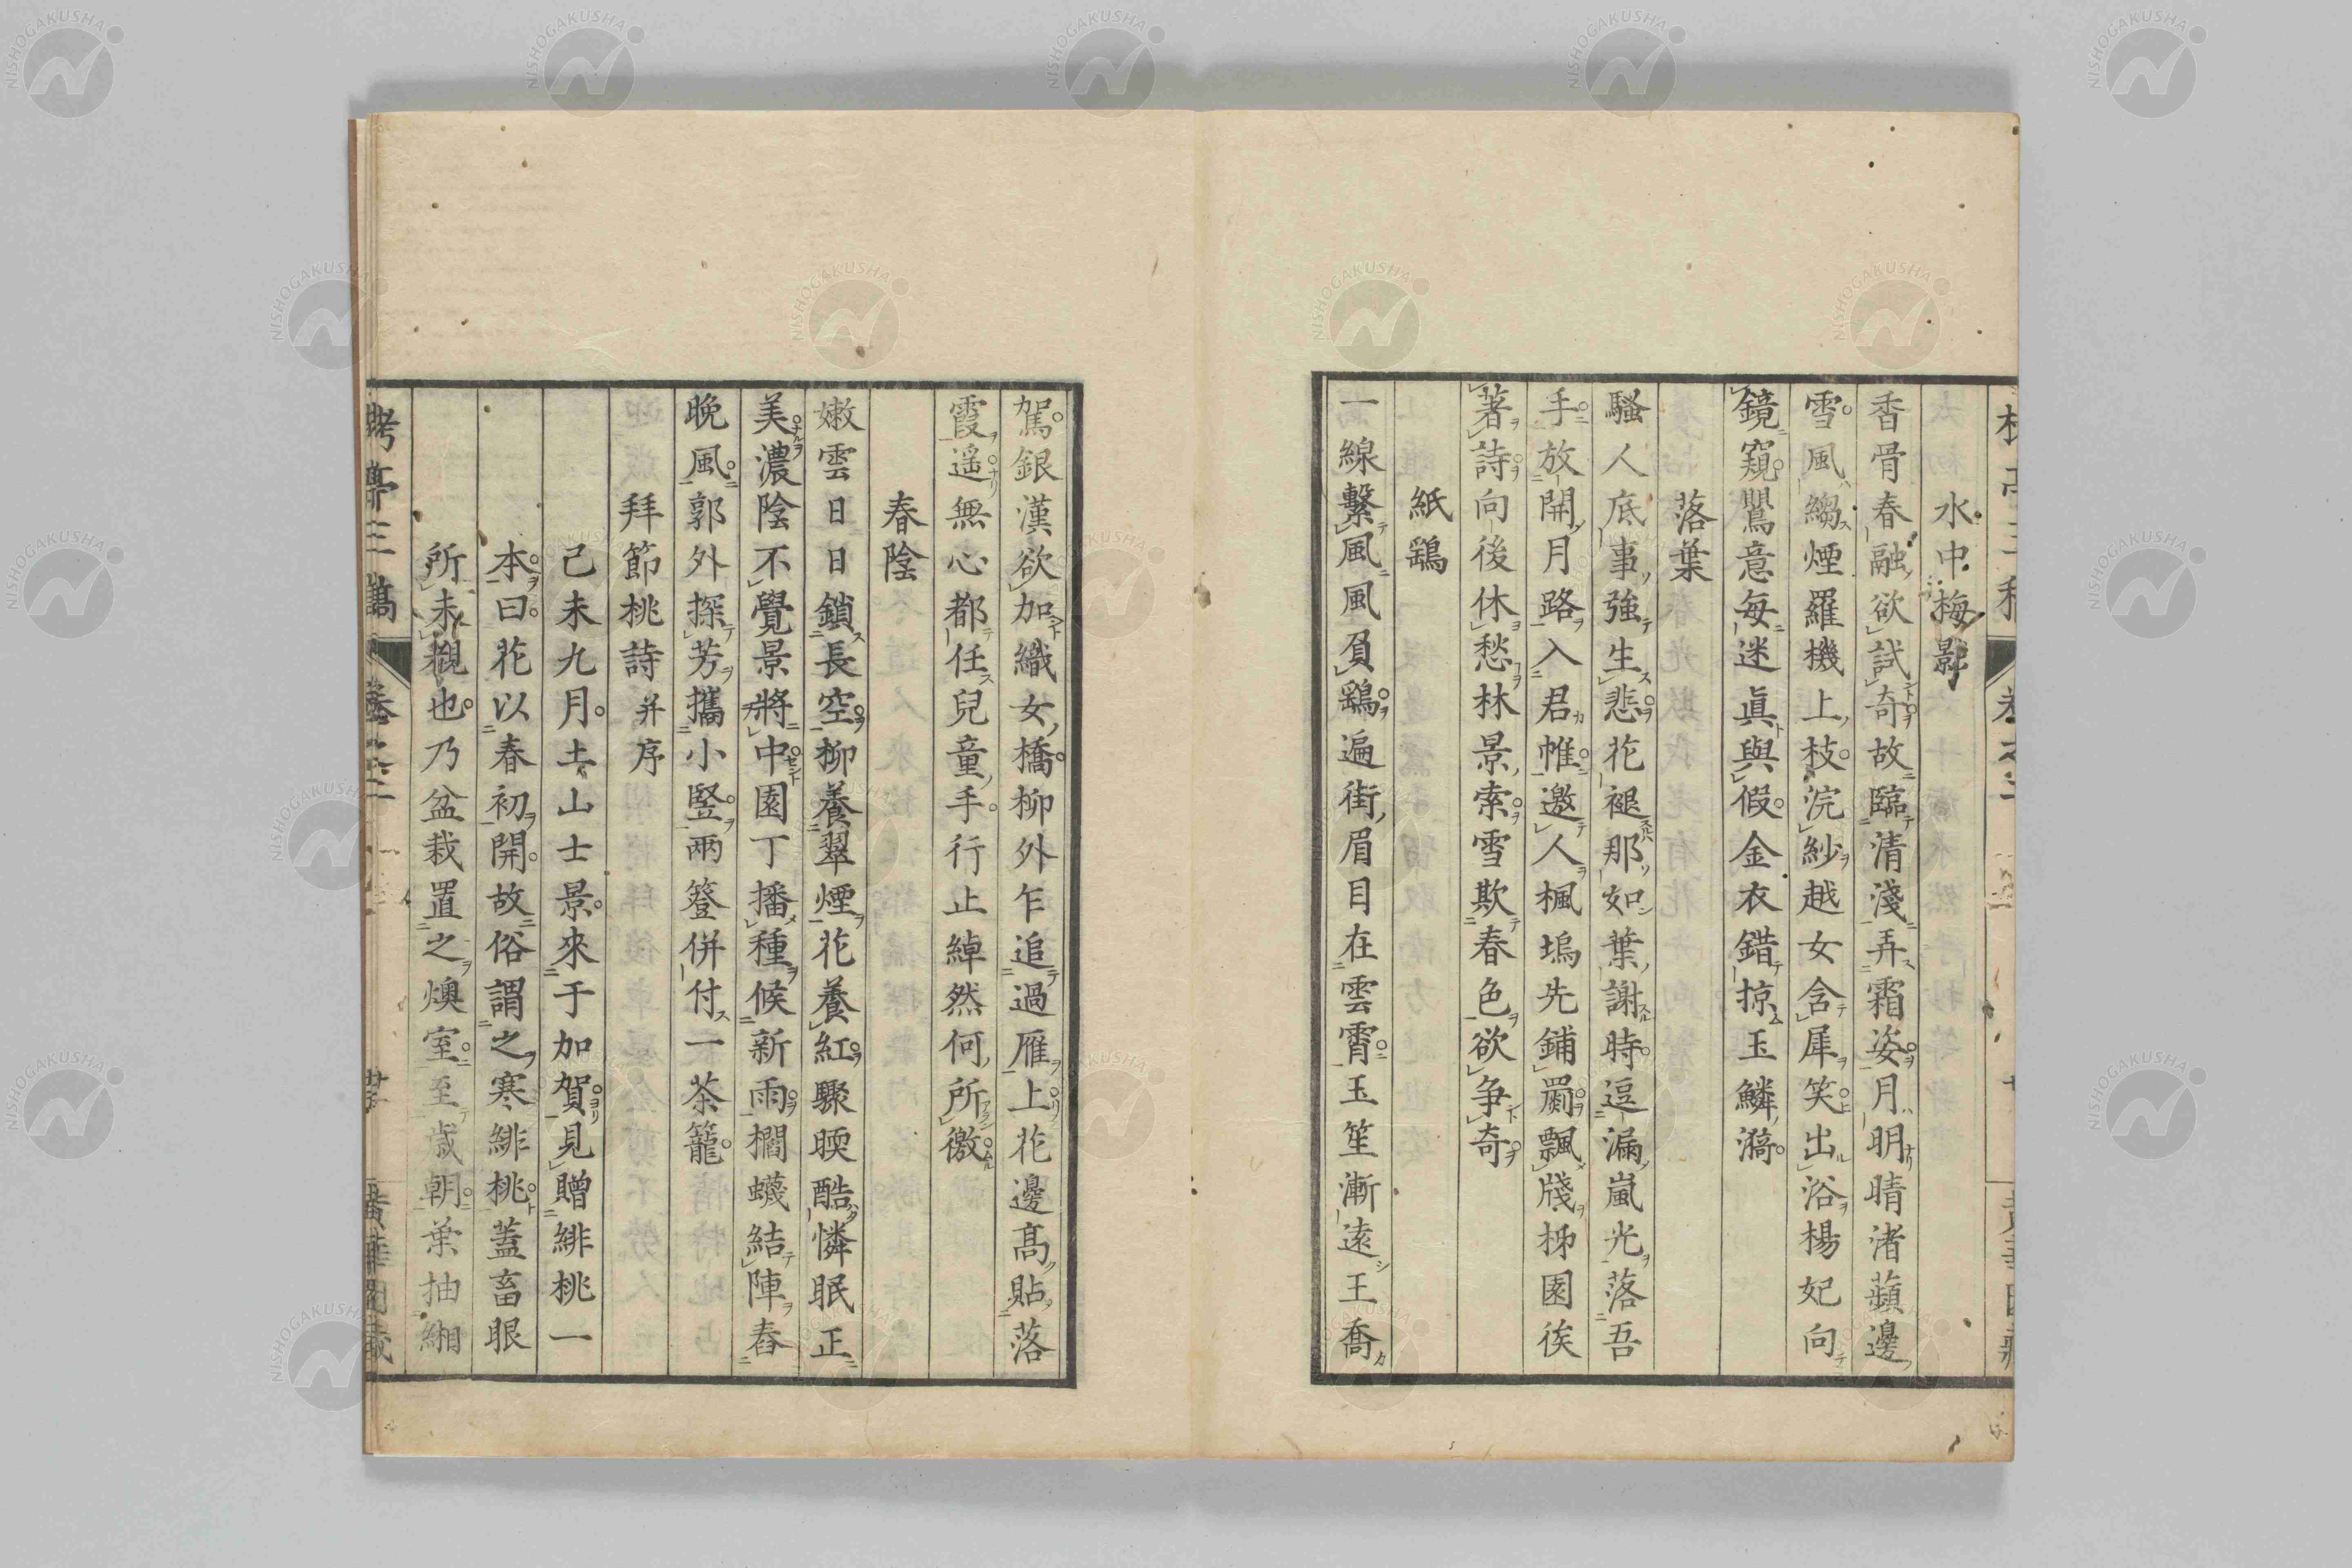 水中梅影
香骨春融欲試奇故臨清淺弄霜姿月明晴渚蘋邊
雪風縐煙羅機上枝浣紗越女含犀笑出浴楊妃向
鏡窺鸎意每迷眞與假金衣錯掠玉鱗漪
落葉
騷人底事強生悲花褪那如葉謝時逗漏嵐光落吾
手放開月路入君帷邀人楓塢先鋪罽飄牋柹園俟
著詩向後休愁林景索雪欺春色欲争奇
紙鷂
一線繫風風負鷂遍街眉目在雲霄玉笙漸遠王喬
駕銀漢欲加織女橋柳外乍追過雁上花邊高貼落
霞遥無心都任兒童手行止綽然何所徼
春陰
嫩雲日日鎖長空柳養翠煙花養紅驟暖酷憐眠正
美濃陰不覺景將中園丁播種候新雨欄蠛結陣舂
晩風郭外探芳攜小竪兩簦併付一茶籠
拜節桃詩并序
己未九月土山士景來于加賀見贈緋桃一
本曰花以春初開故俗謂之寒緋桃蓋畜眼
所未覩也乃盆栽置之燠室至歳朝葉抽緗